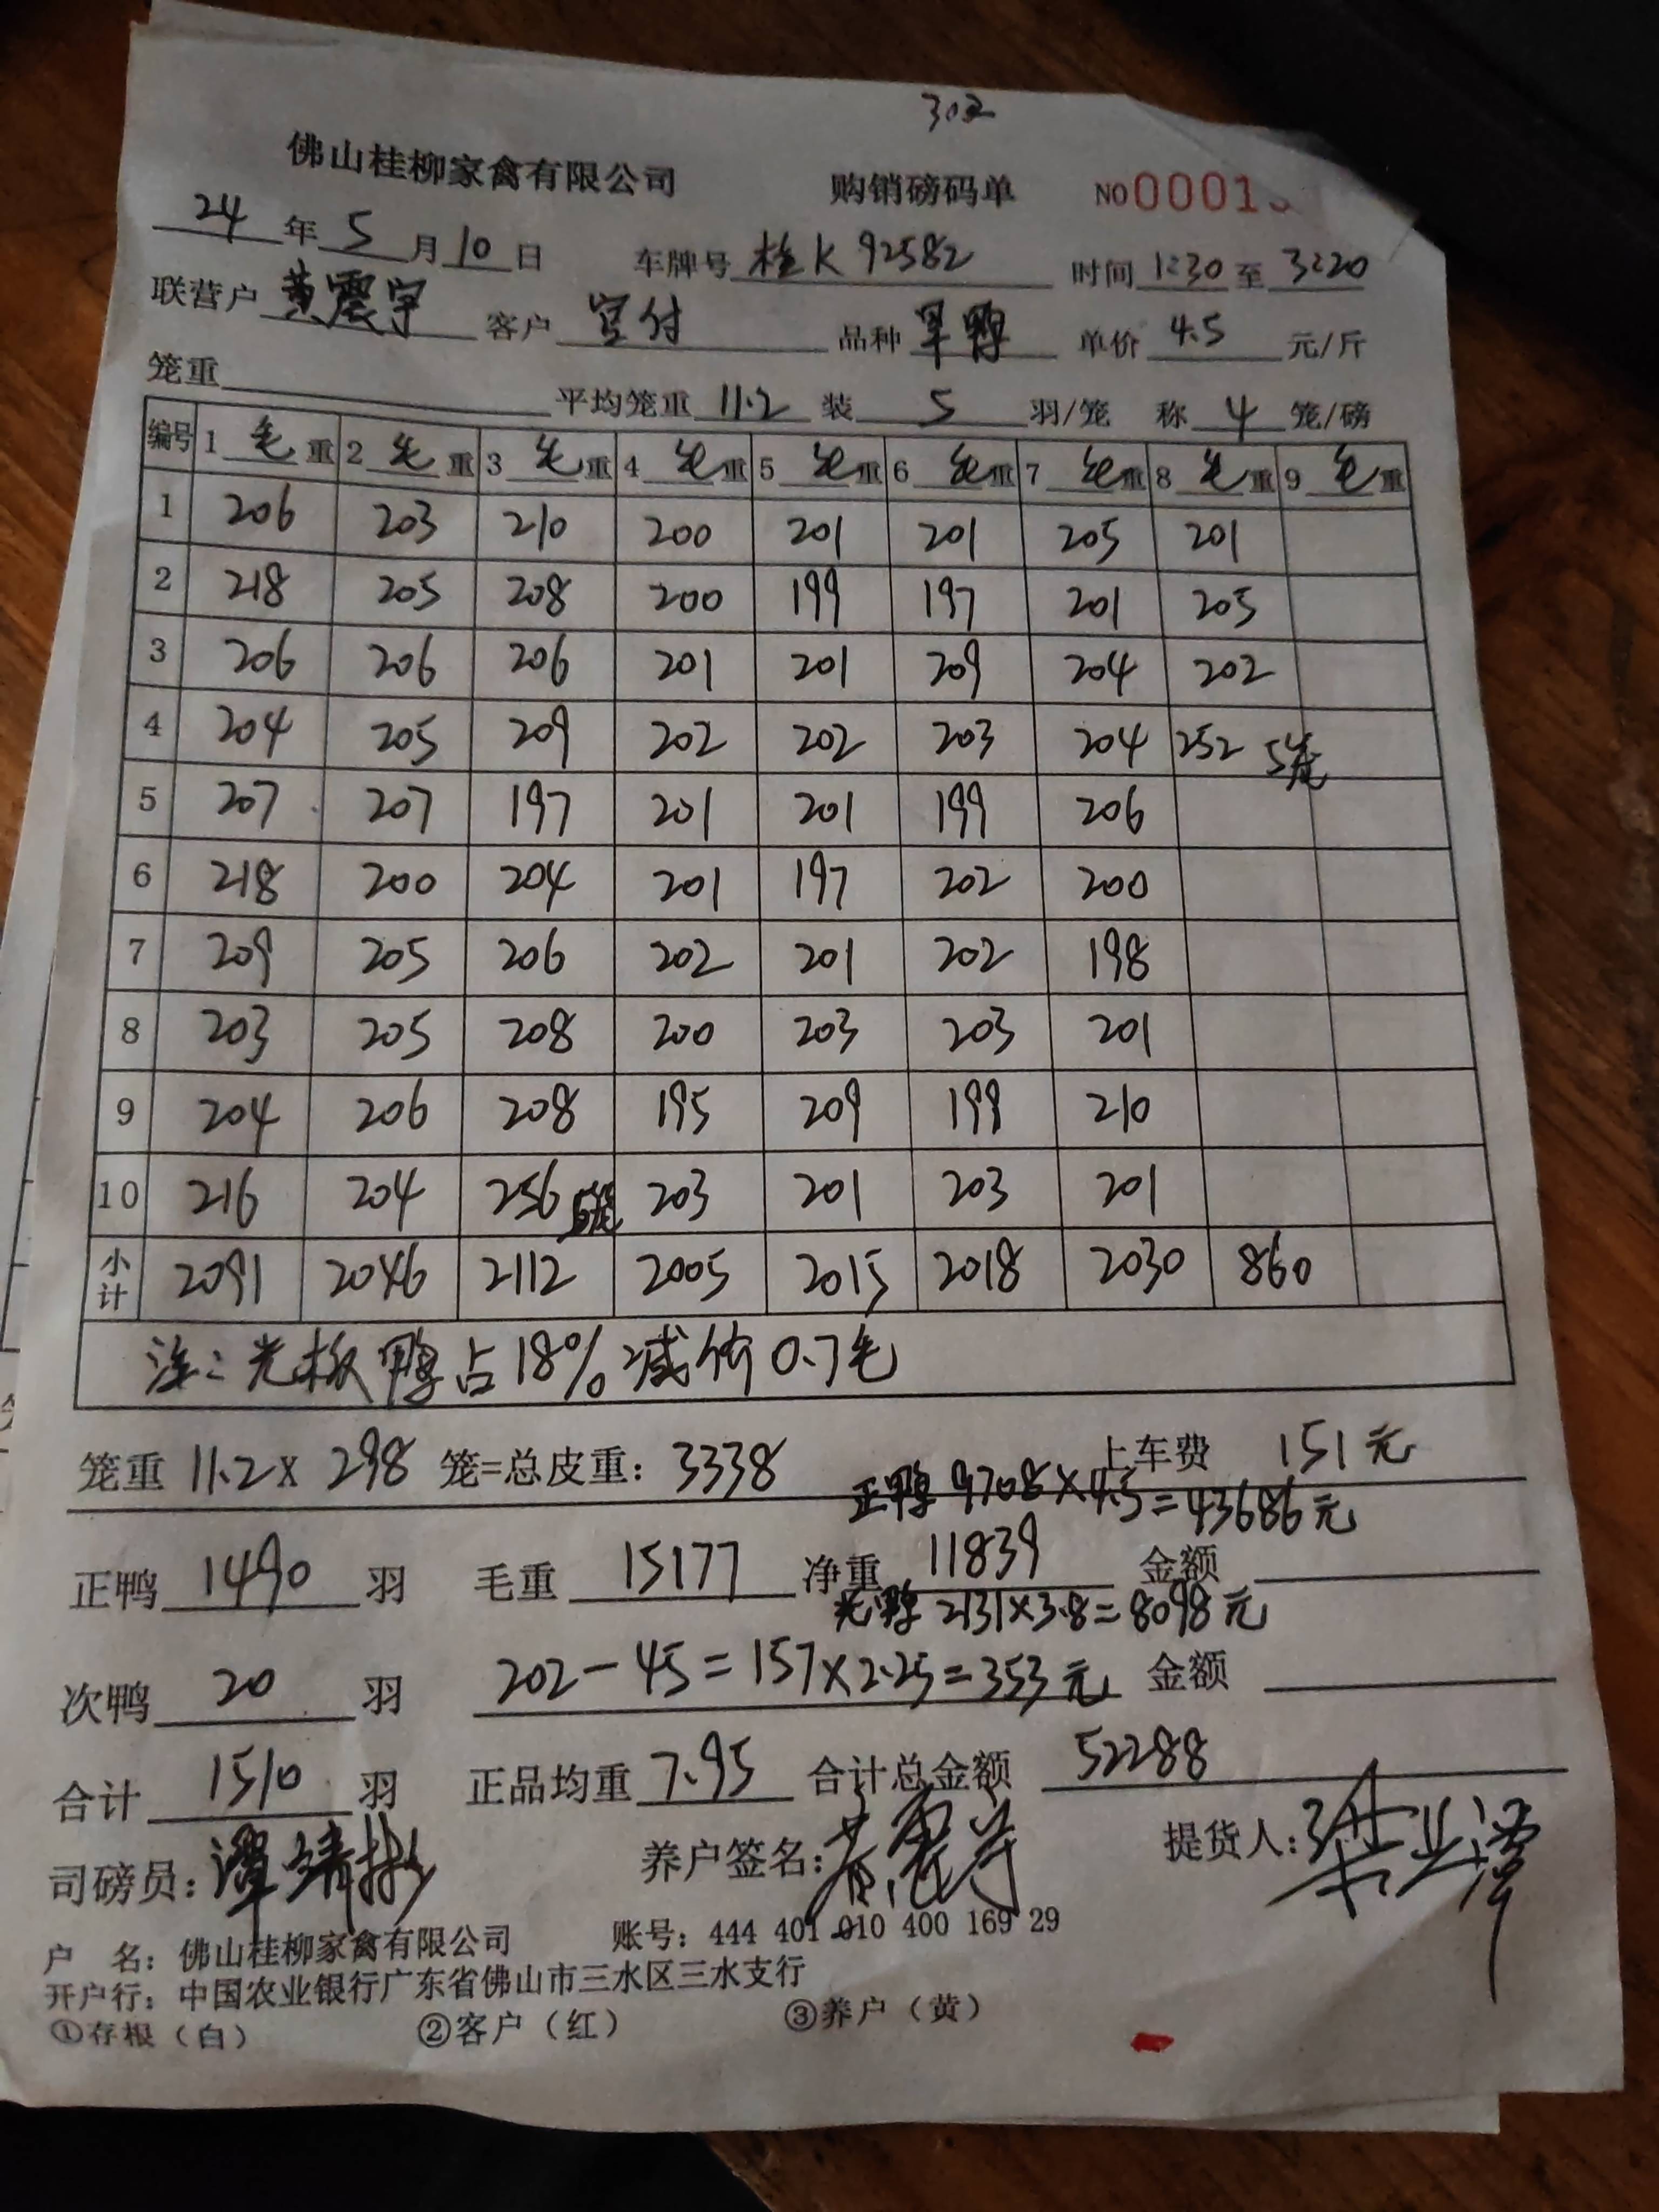 302
佛山桂柳家禽有限公司 购销磅码单 NO 0001
24年5月10日 车牌号 桂K 92582 时间 1:30 至 3:20
联营户 黄震宇 客户 宝付 品种 旱鸭 单价 4.5 元/斤
笼重 平均笼重 11.2 装 5 羽/笼 称 4 笼/磅
编号 1 毛重 2 毛重 3 毛重 4 毛重 5 毛重 6 毛重 7 毛重 8 毛重 9 毛重
1 206 203 210 200 201 201 205 201
2 218 205 208 200 199 197 201 205
3 206 206 206 201 201 209 204 202
4 204 205 209 202 202 203 204 252 5笼
5 207 207 197 201 201 199 206
6 218 200 204 201 197 202 200
7 209 205 206 202 201 202 198
8 203 205 208 200 203 203 201
9 204 206 208 195 209 199 210
10 216 204 256 5笼 203 201 203 201
小计 2091 2046 2112 2005 2015 2018 2030 860
注:光板鸭占18%减价0.7毛
笼重 11.2 X 298 笼=总皮重: 3338 上车费 151元
正鸭 9708×4.5=43686元
正鸭 1490 羽 毛重 15177 净重 11839 金额
光鸭 2131×3.8=8098元
次鸭 20 羽 202-45=157×2.25=353元 金额
合计 1510 羽 正品均重 7.95 合计总金额 52288
司磅员: 养户签名: 黄震宇 提货人:
户 名: 佛山桂柳家禽有限公司 账号: 444 401 010 400 169 29
开户行: 中国农业银行广东省佛山市三水区三水支行
①存根(白) ②客户(红) ③养户(黄)